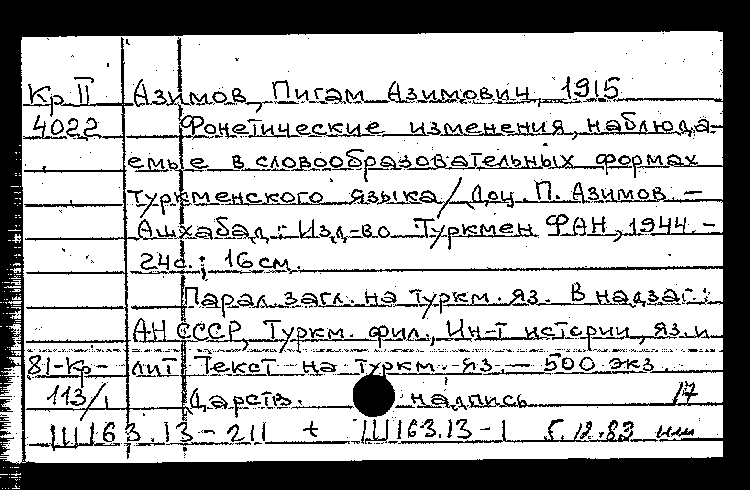 Кр II Азимов, Пигам Азимович, 1915
4022 Фонетические изменения, наблюда-
емые в словообразовательных формах
туркменского языка / Доц. П. Азимов –
Ашхабад : Изд-во Туркмен ФАН, 1944. -
24с. ; 16 см.
Парал. загл. на туркм. яз. В надзаг.:
АН СССР, Туркм. фил., Ин-т истории, яз. и
81-Кр- лит Текст на туркм. яз. – 500 экз.
113/1 Дарств. надпись 17
Ш163.13-211 + Ш163.13-1 5.12.83